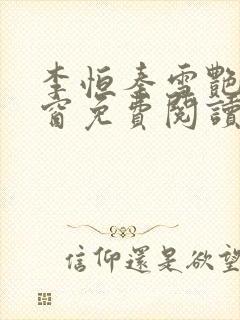 李恒秦雪艷
窗免費閱讀
信仰還是欲望